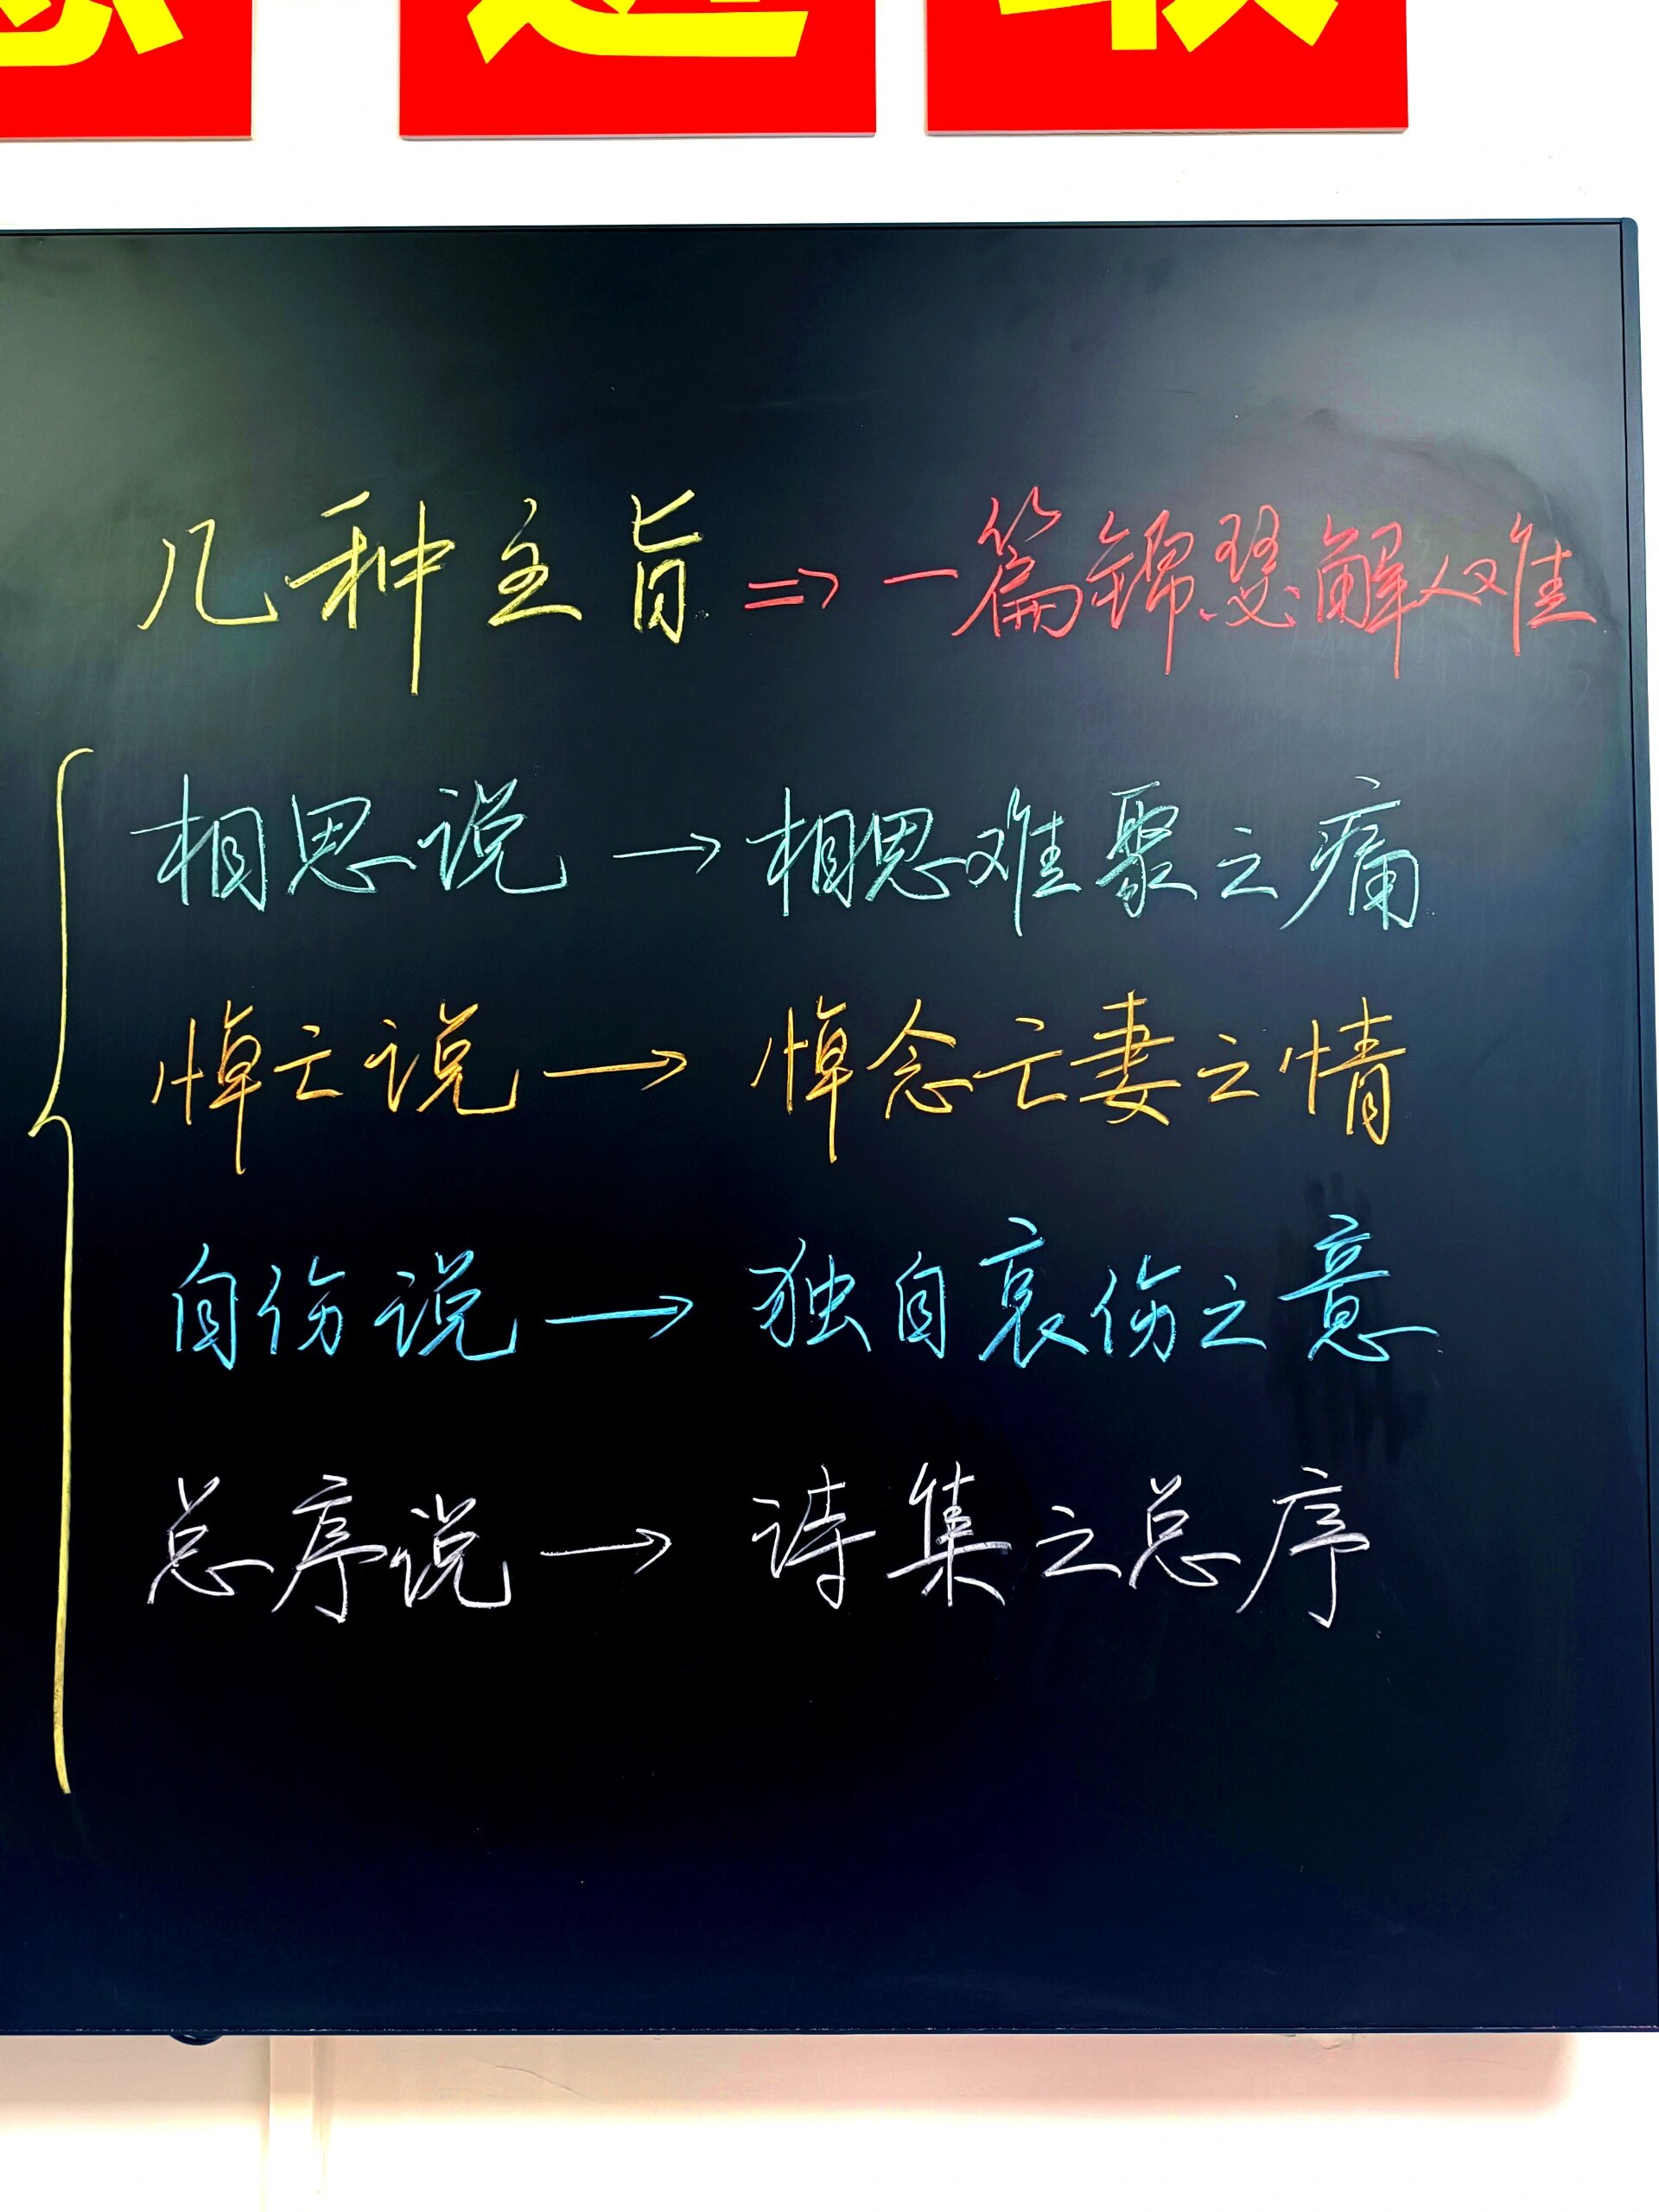 几种主旨 => 一篇锦瑟解人难
相思说 → 相思难聚之痛
悼亡说 → 悼念亡妻之情
自伤说 → 独自哀伤之意
总序说 → 诗集之总序